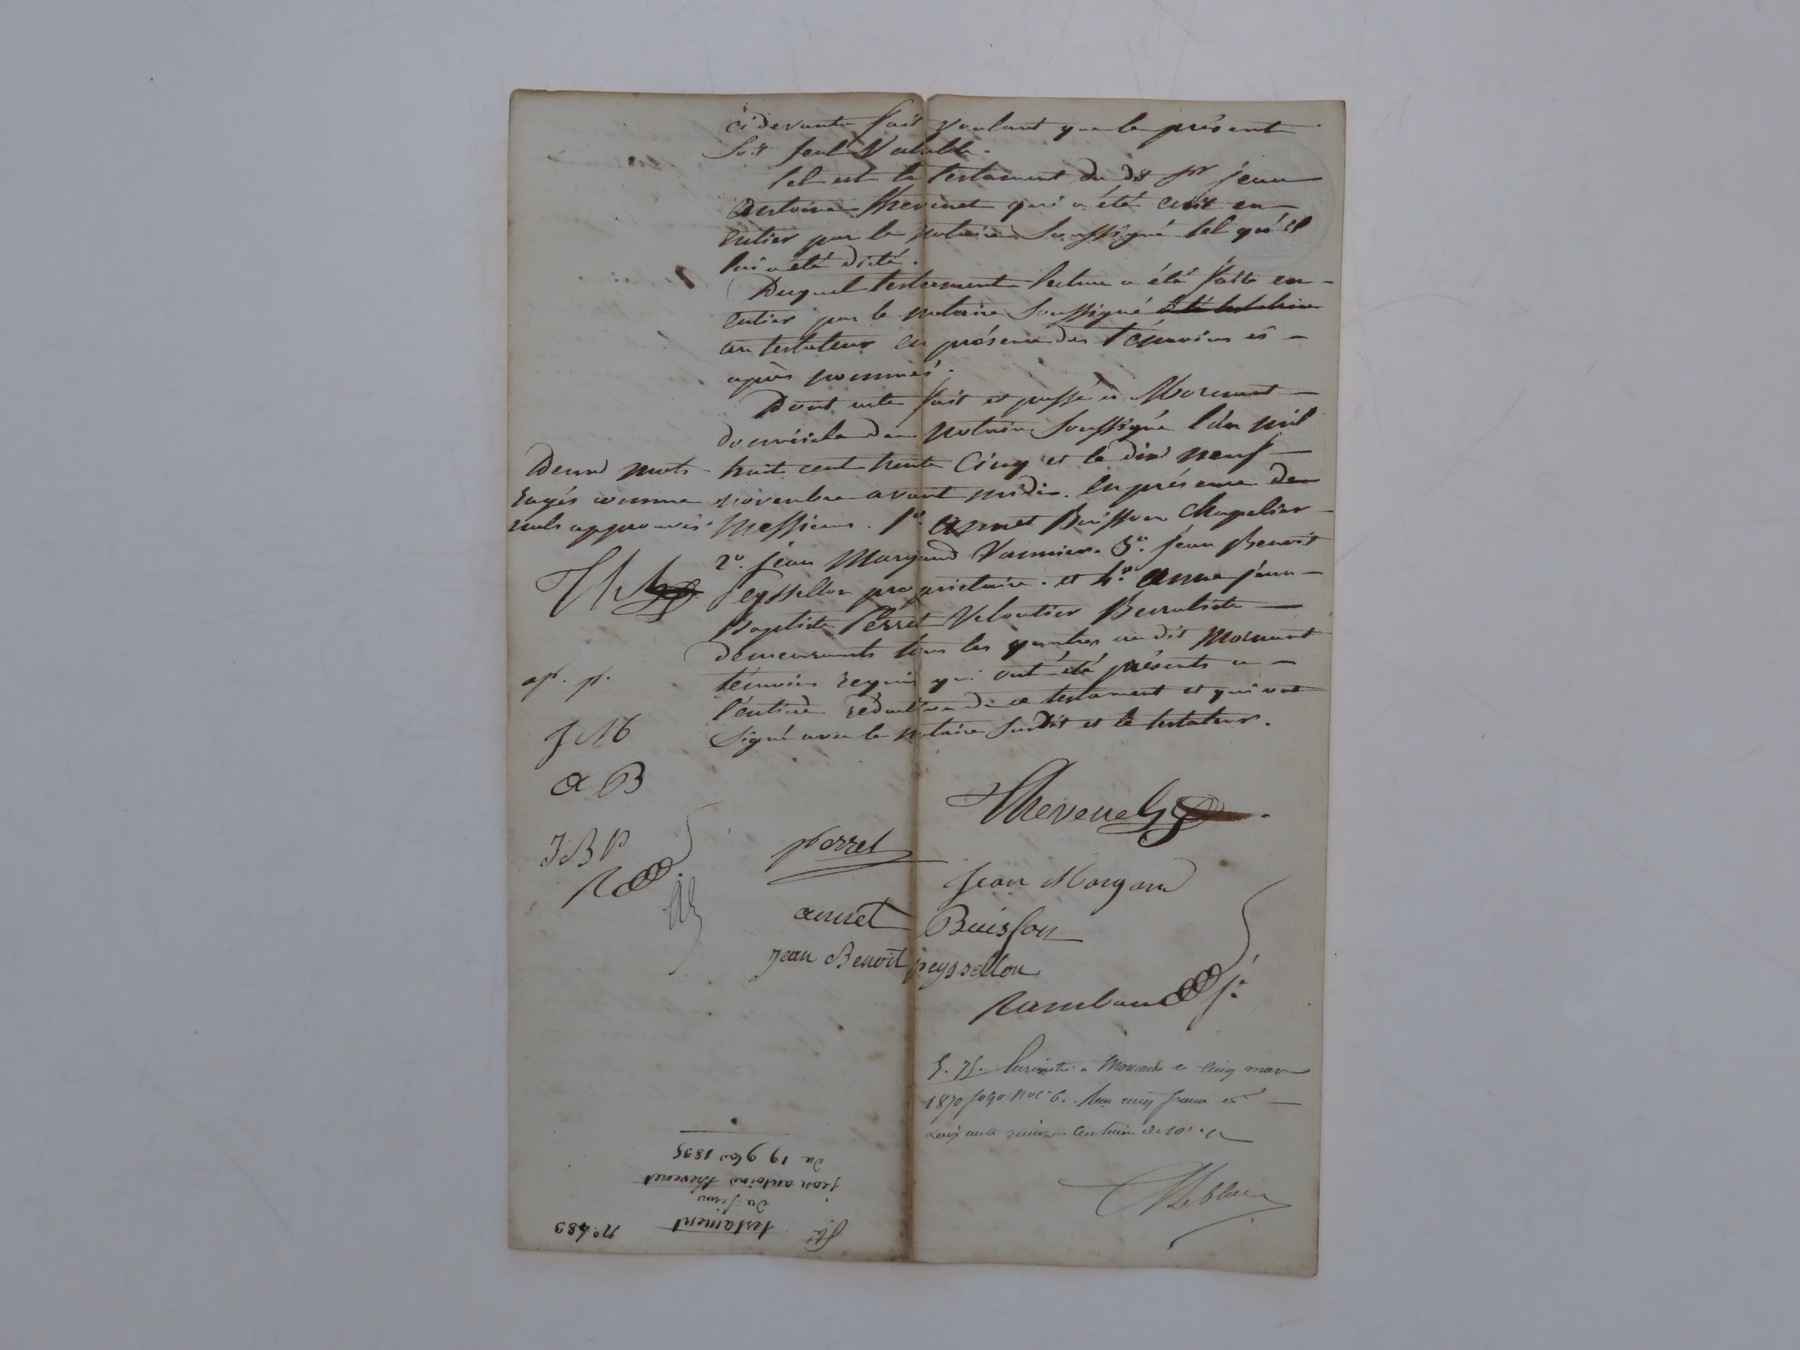 ci devant fait voulant que le présent
soit seul valable.
Tel est le testament du dit Sr jean
antoine thevenet qui a été écrit en
entier par le notaire soussigné tel qu'il
lui a été dicté.
Duquel testament lecture a été faite en
entier par le notaire soussigné
au testateur en présence des témoins ci
après nommés.
Dont acte fait et passé à Mornant
domicile du notaire soussigné l'an mil
huit cent trente cinq et le dix neuf
novembre avant midi. En présence de
Messieurs. 1o. annet Buisson Chapelier
2o. jean Margand Vannier. 3o. jean Benoît
Peyssellon propriétaire. et 4o. anne jean
Baptiste Perret Veloutier Buraliste
demeurants tous les quatre au dit Mornant
témoins requis qui ont été présents a
l'entière rédaction de ce testament et qui ont
signé avec le notaire susdit et le testateur.
Deux mots
rayés comme
nuls approuvés
Th
ap. p.
J M
a B
J B P
R
Thevenet
perret
Jean Margand
annet Buisson
Jean Benoit peyssellon
Rambaud
F. 75. Enregistré à Mornant le cinq mars
1870 fo 90 Ro c. 6. Reçu cinq francs et
soixante quinze centimes de 10es
Leblanc
No 489
testament
du sieur
jean antoine thevenet
du 19 9bre 1835